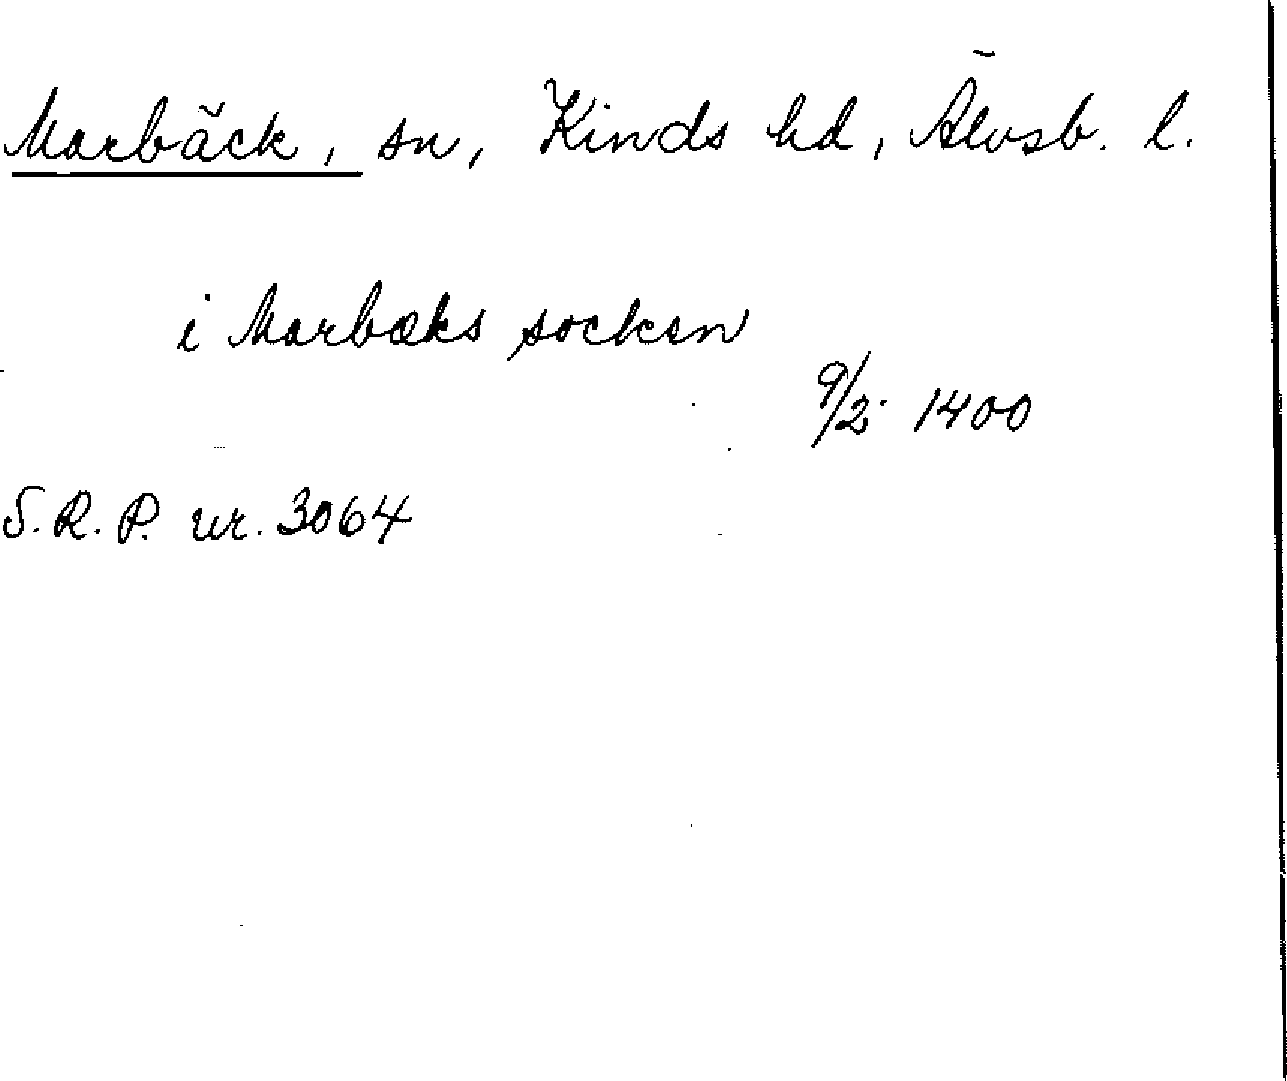 Marbäck, sn, Kinds hd, Älvsb. l.
i Marbæks socken
9/2 1400
S.R.P. nr. 3064